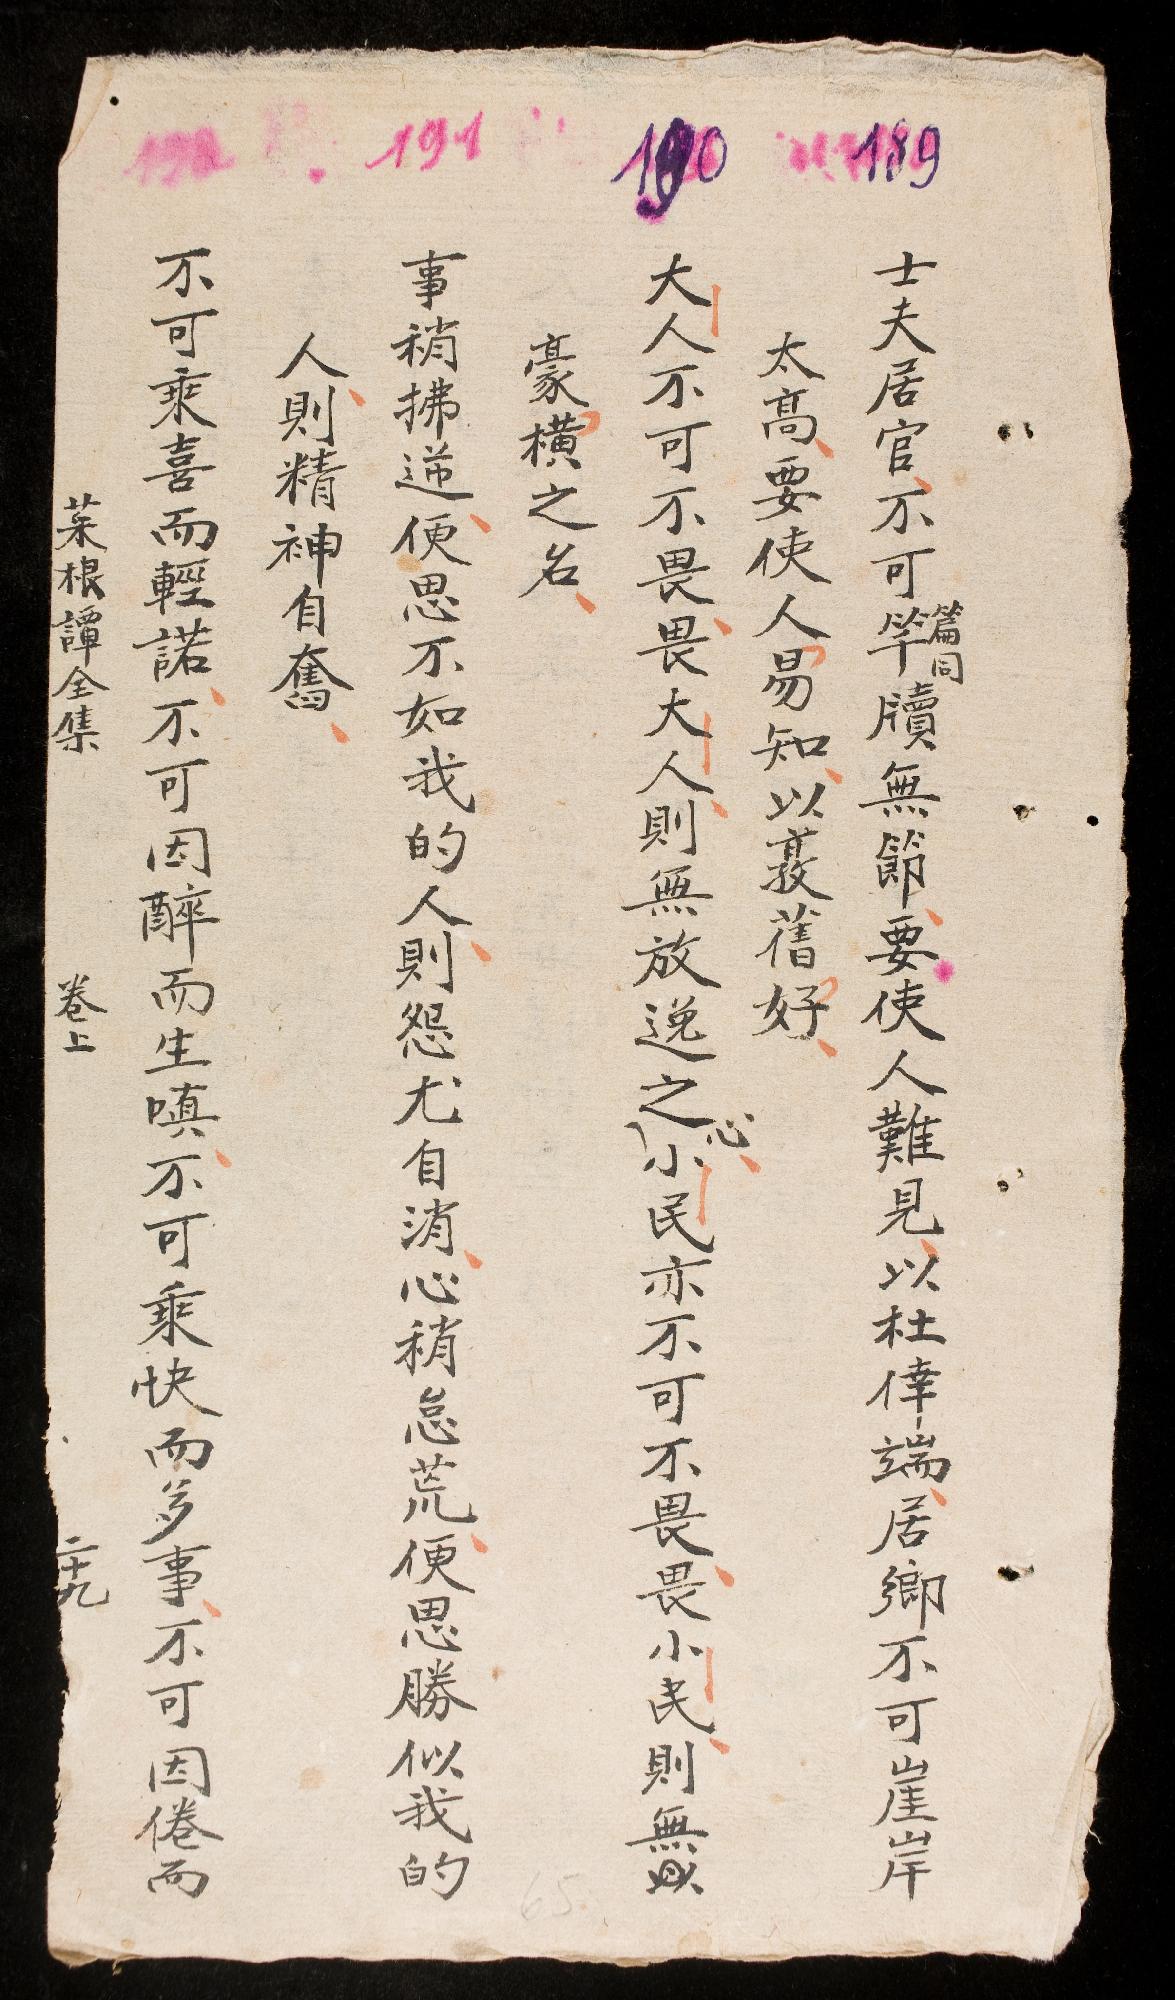 189
士夫居官不可竿牘無節要使人難見以杜倖端居鄉不可崖岸
篇同
太高要使人易知以敦舊好
190
大人不可不畏畏大人則無放逸之小民亦不可不畏畏小民則無
心
豪橫之名
191
事稍拂逆便思不如我的人則怨尤自消心稍怠荒便思勝似我的
人則精神自奮
192
不可乘喜而輕諾不可因醉而生嗔不可乘快而多事不可因倦而
菜根譚全集 卷上 二十九
65